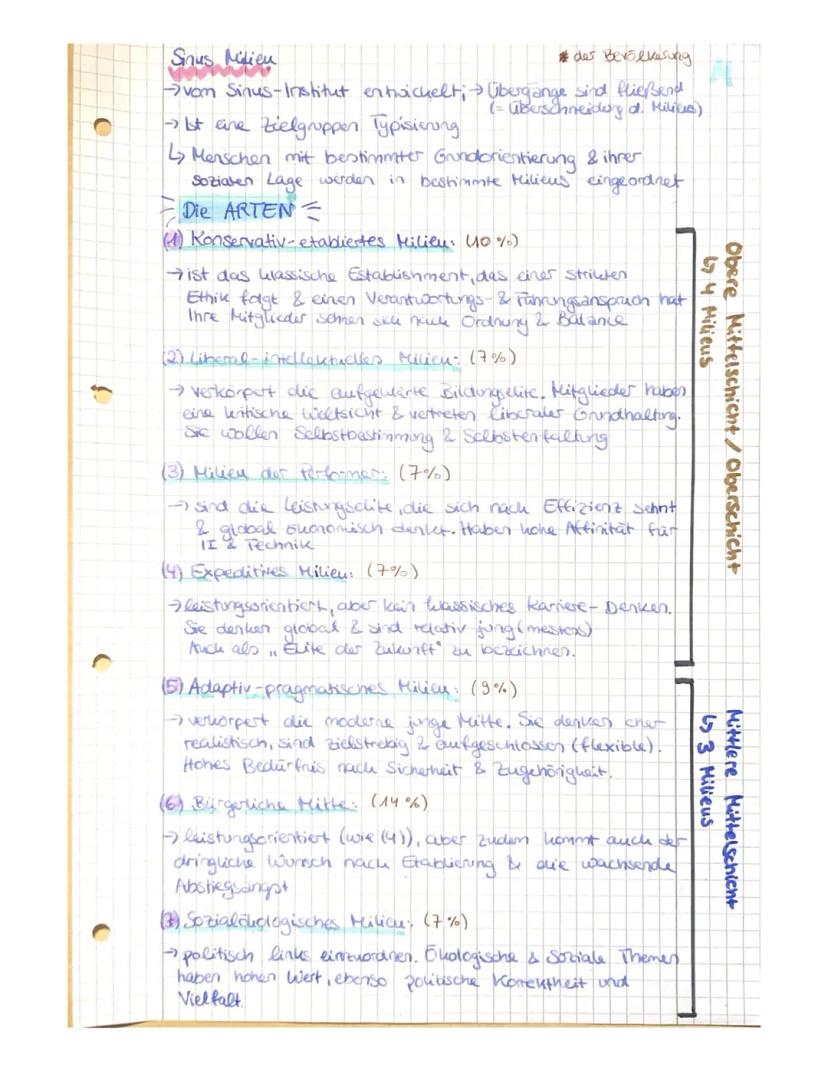 Sinus Milieu
* der Bevölkerung
→ vom Sinus-Institut entwickelt; → Übergänge sind fließend
(= Überschneidung d. Milieus)
→ Ist eine Zielgruppen Typisierung
↳ Menschen mit bestimmter Grundorientierung & ihrer
sozialen Lage werden in bestimmte Milieus eingeordnet
Die ARTEN
(1) Konservativ-etabliertes Milieu: (10%)
→ ist das klassische Establishment, das einer strikten
Ethik folgt & einen Verantwortungs- & Führungsanspruch hat
Ihre Mitglieder sehnen sich nach Ordnung & Balance
(2) Liberal-intellektuelles Milieu: (7%)
→ verkörpert die aufgeklärte Bildungselite. Mitglieder haben
eine kritische Weltsicht & vertreten liberaler Grundhaltung.
Sie wollen Selbstbestimmung & Selbstentfaltung
(3) Milieu der Performer: (7%)
→ sind die Leistungselite, die sich nach Effizienz sehnt
& global ökonomisch denkt. Haben hohe Affinität für
IT & Technik
(4) Expeditives Milieu: (7%)
→ leistungsorientiert, aber kein klassisches Karriere-Denken.
Sie denken global & sind relativ jung (meistens)
Auch als „Elite der Zukunft" zu bezeichnen.
(5) Adaptiv-pragmatisches Milieu: (9%)
→ verkörpert die moderne junge Mitte. Sie denken eher
realistisch, sind zielstrebig & aufgeschlossen (flexible).
Hohes Bedürfnis nach Sicherheit & Zugehörigkeit.
(6) Bürgerliche Mitte: (14%)
→ leistungsorientiert (wie (4)), aber zudem kommt auch der
dringliche Wunsch nach Etablierung & die wachsende
Abstiegsangst
(7) Sozialökologisches Milieu: (7%)
→ politisch links einzuordnen. Ökologische & Soziale Themen
haben hohen Wert, ebenso politische Korrektheit und
Vielfalt.
Obere Mittelschicht / Oberschicht
↳ 4 Milieus
Mittlere Mittelschicht
↳ 3 Milieus